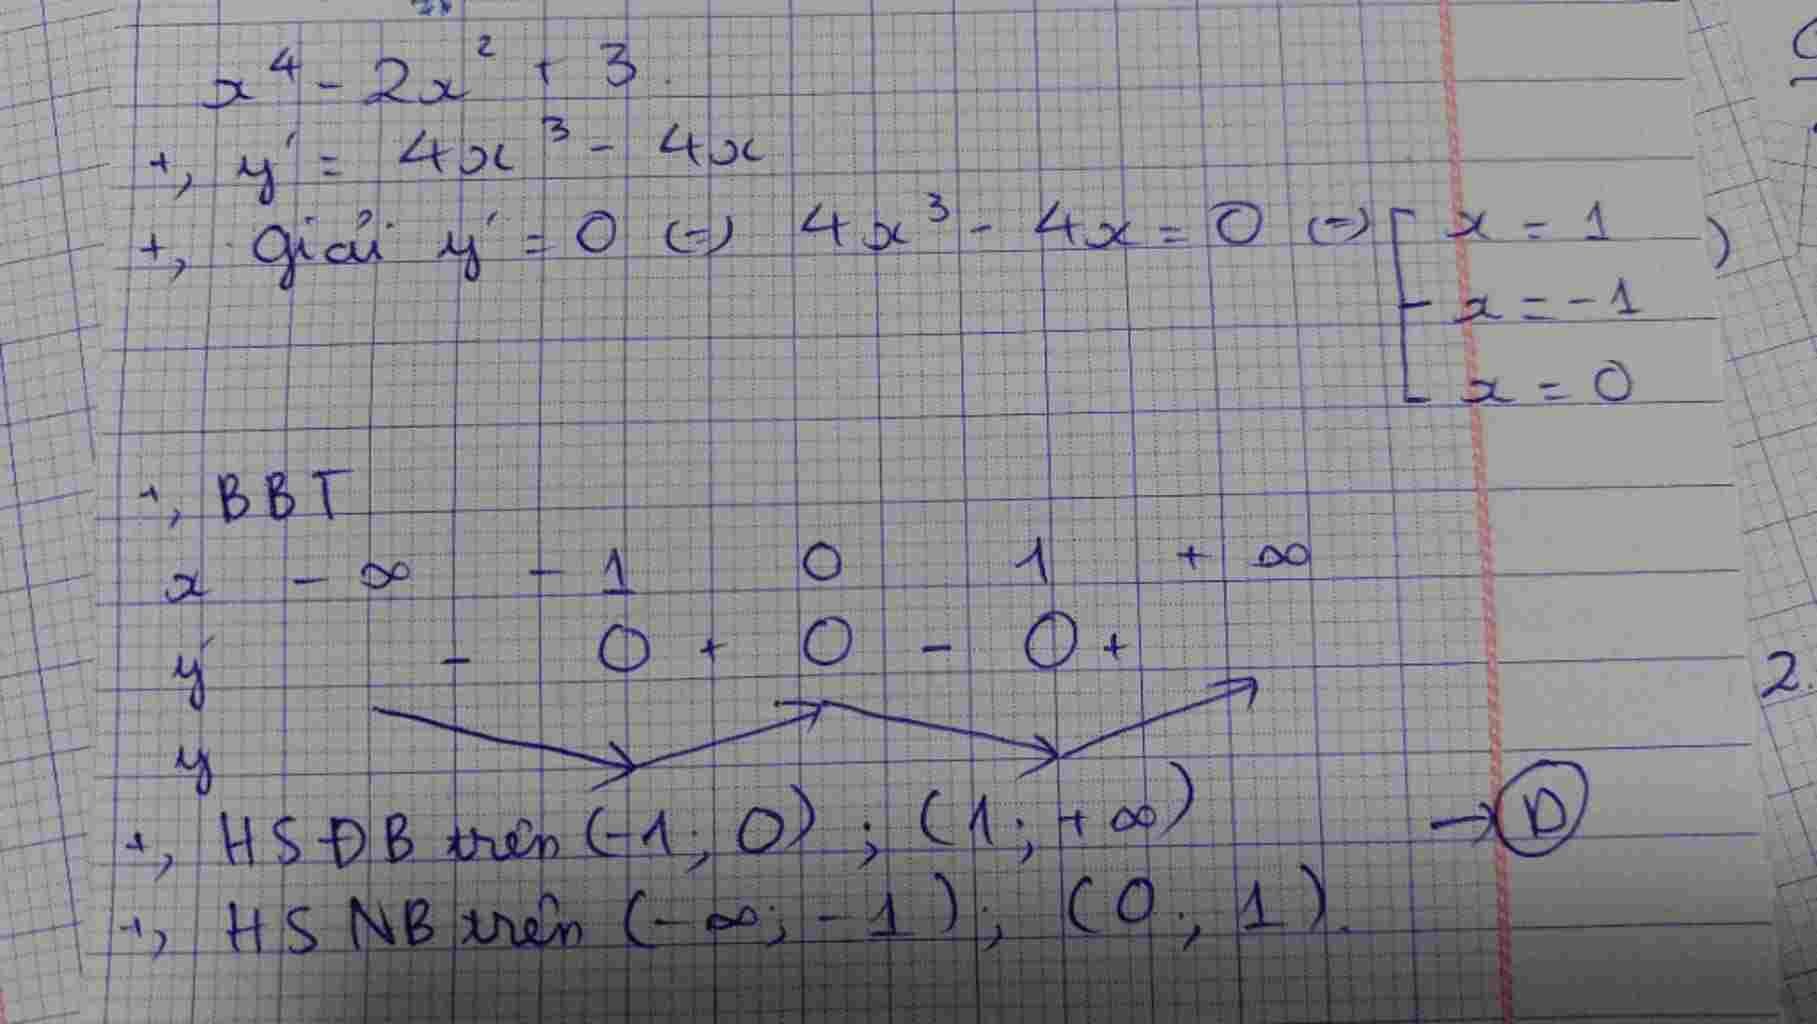 x⁴ - 2x² + 3.
+, y' = 4x³ - 4x
+, Giải y' = 0 (=) 4x³ - 4x = 0 (=) [ x = 1 )
x = -1
x = 0
+, BBT
x -∞ -1 0 1 +∞
y' - 0 + 0 - 0 +
y
+, HSĐB trên (-1; 0) ; (1; +∞) → D
+, HSNB trên (-∞; -1) ; (0; 1).
2.